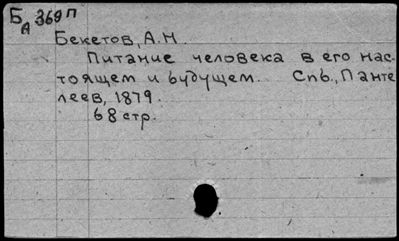 Б А 369 П
Бекетов, А.Н.
Питание человека в его нас-
тоящем и будущем. Спб., Панте
леев, 1879.
68 стр.